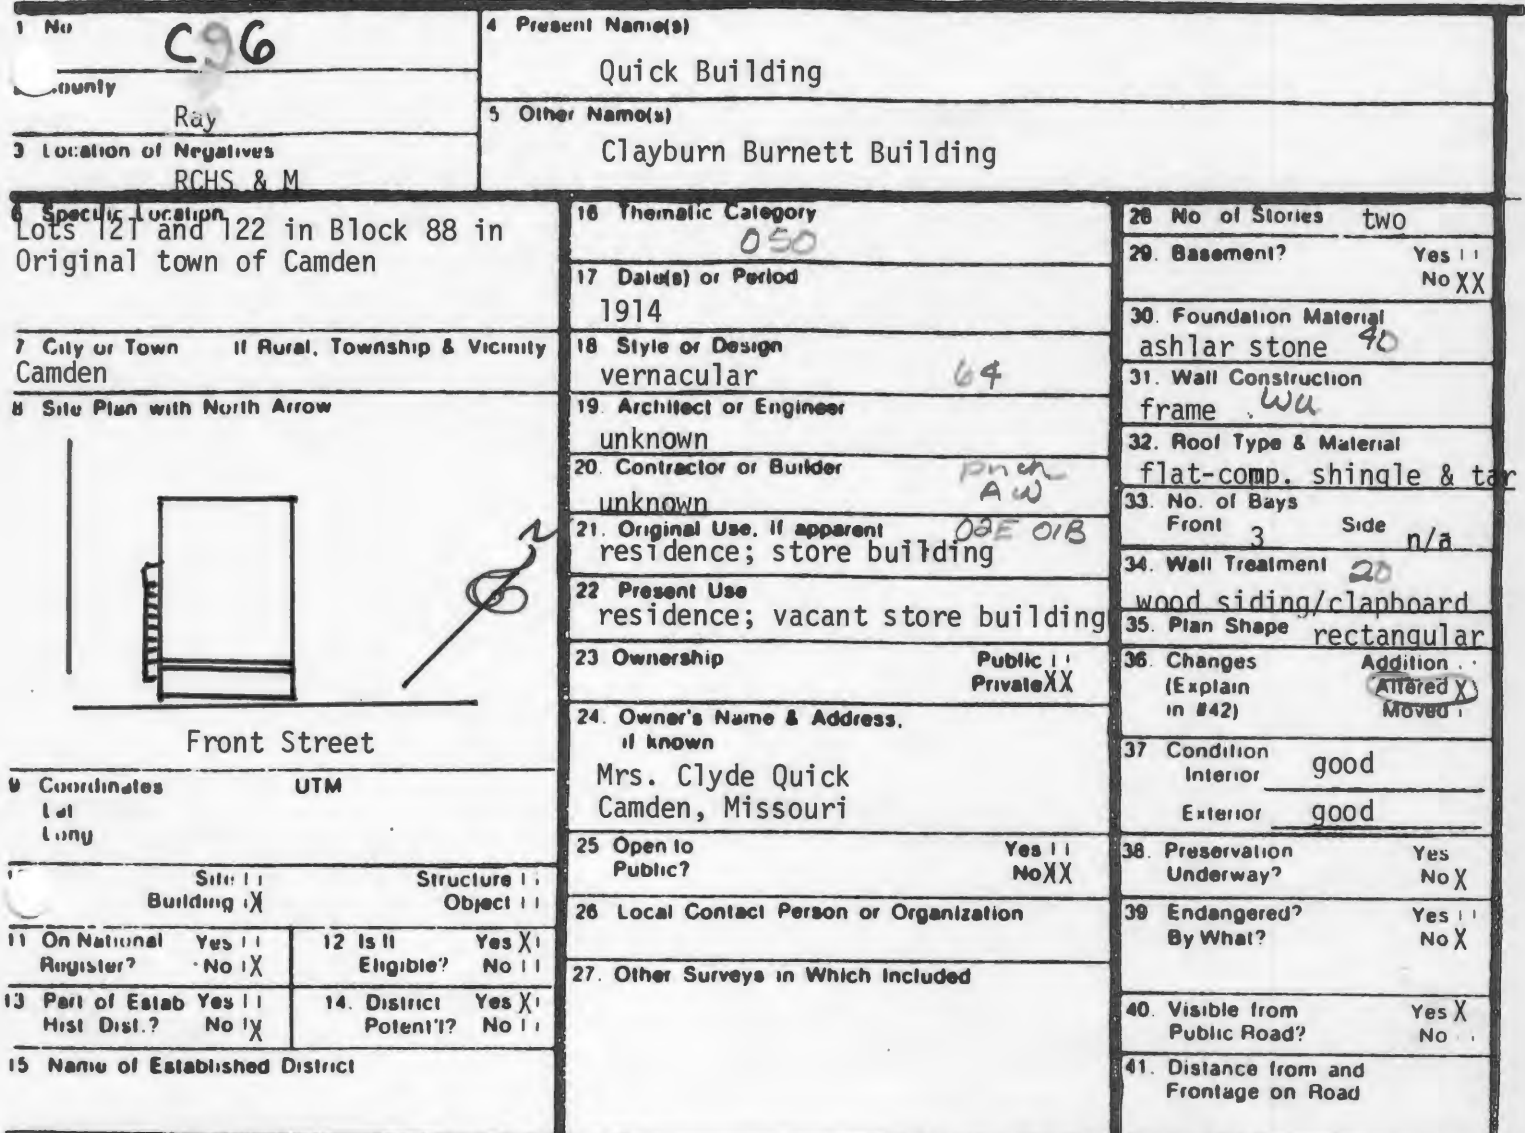 1 No
C96
County
Ray
3 Location of Negatives
RCHS & M
4 Present Name(s)
Quick Building
5 Other Name(s)
Clayburn Burnett Building
6 Specific Location
Lots 121 and 122 in Block 88 in
Original town of Camden
7 City or Town If Rural, Township & Vicinity
Camden
8 Site Plan with North Arrow
N
Front Street
9 Coordinates UTM
Lat
Long
Site
Structure
Building X
Object
11 On National Register? Yes No X
12 Is It Eligible? Yes X No
13 Part of Estab Hist Dist.? Yes No X
14. District Potent'l? Yes X No
15 Name of Established District
16 Thematic Category
050
17 Date(s) or Period
1914
18 Style or Design
vernacular 64
19. Architect or Engineer
unknown
20. Contractor or Builder
unknown
21. Original Use, If apparent 02E 01B
residence; store building
22 Present Use
residence; vacant store building
23 Ownership Public
Private XX
24. Owner's Name & Address,
if known
Mrs. Clyde Quick
Camden, Missouri
25 Open to Yes
Public? No XX
26 Local Contact Person or Organization
27. Other Surveys in Which Included
28 No of Stories two
29. Basement? Yes
No XX
30. Foundation Material
ashlar stone 40
31. Wall Construction
frame
32. Roof Type & Material
flat-comp. shingle & tar
33. No. of Bays
Front 3 Side n/a
34. Wall Treatment 20
wood siding/clapboard
35. Plan Shape rectangular
36. Changes Addition
(Explain Altered X
in #42) Moved
37 Condition
Interior good
Exterior good
38. Preservation Yes
Underway? No X
39 Endangered? Yes
By What? No X
40. Visible from Yes X
Public Road? No
41. Distance from and
Frontage on Road